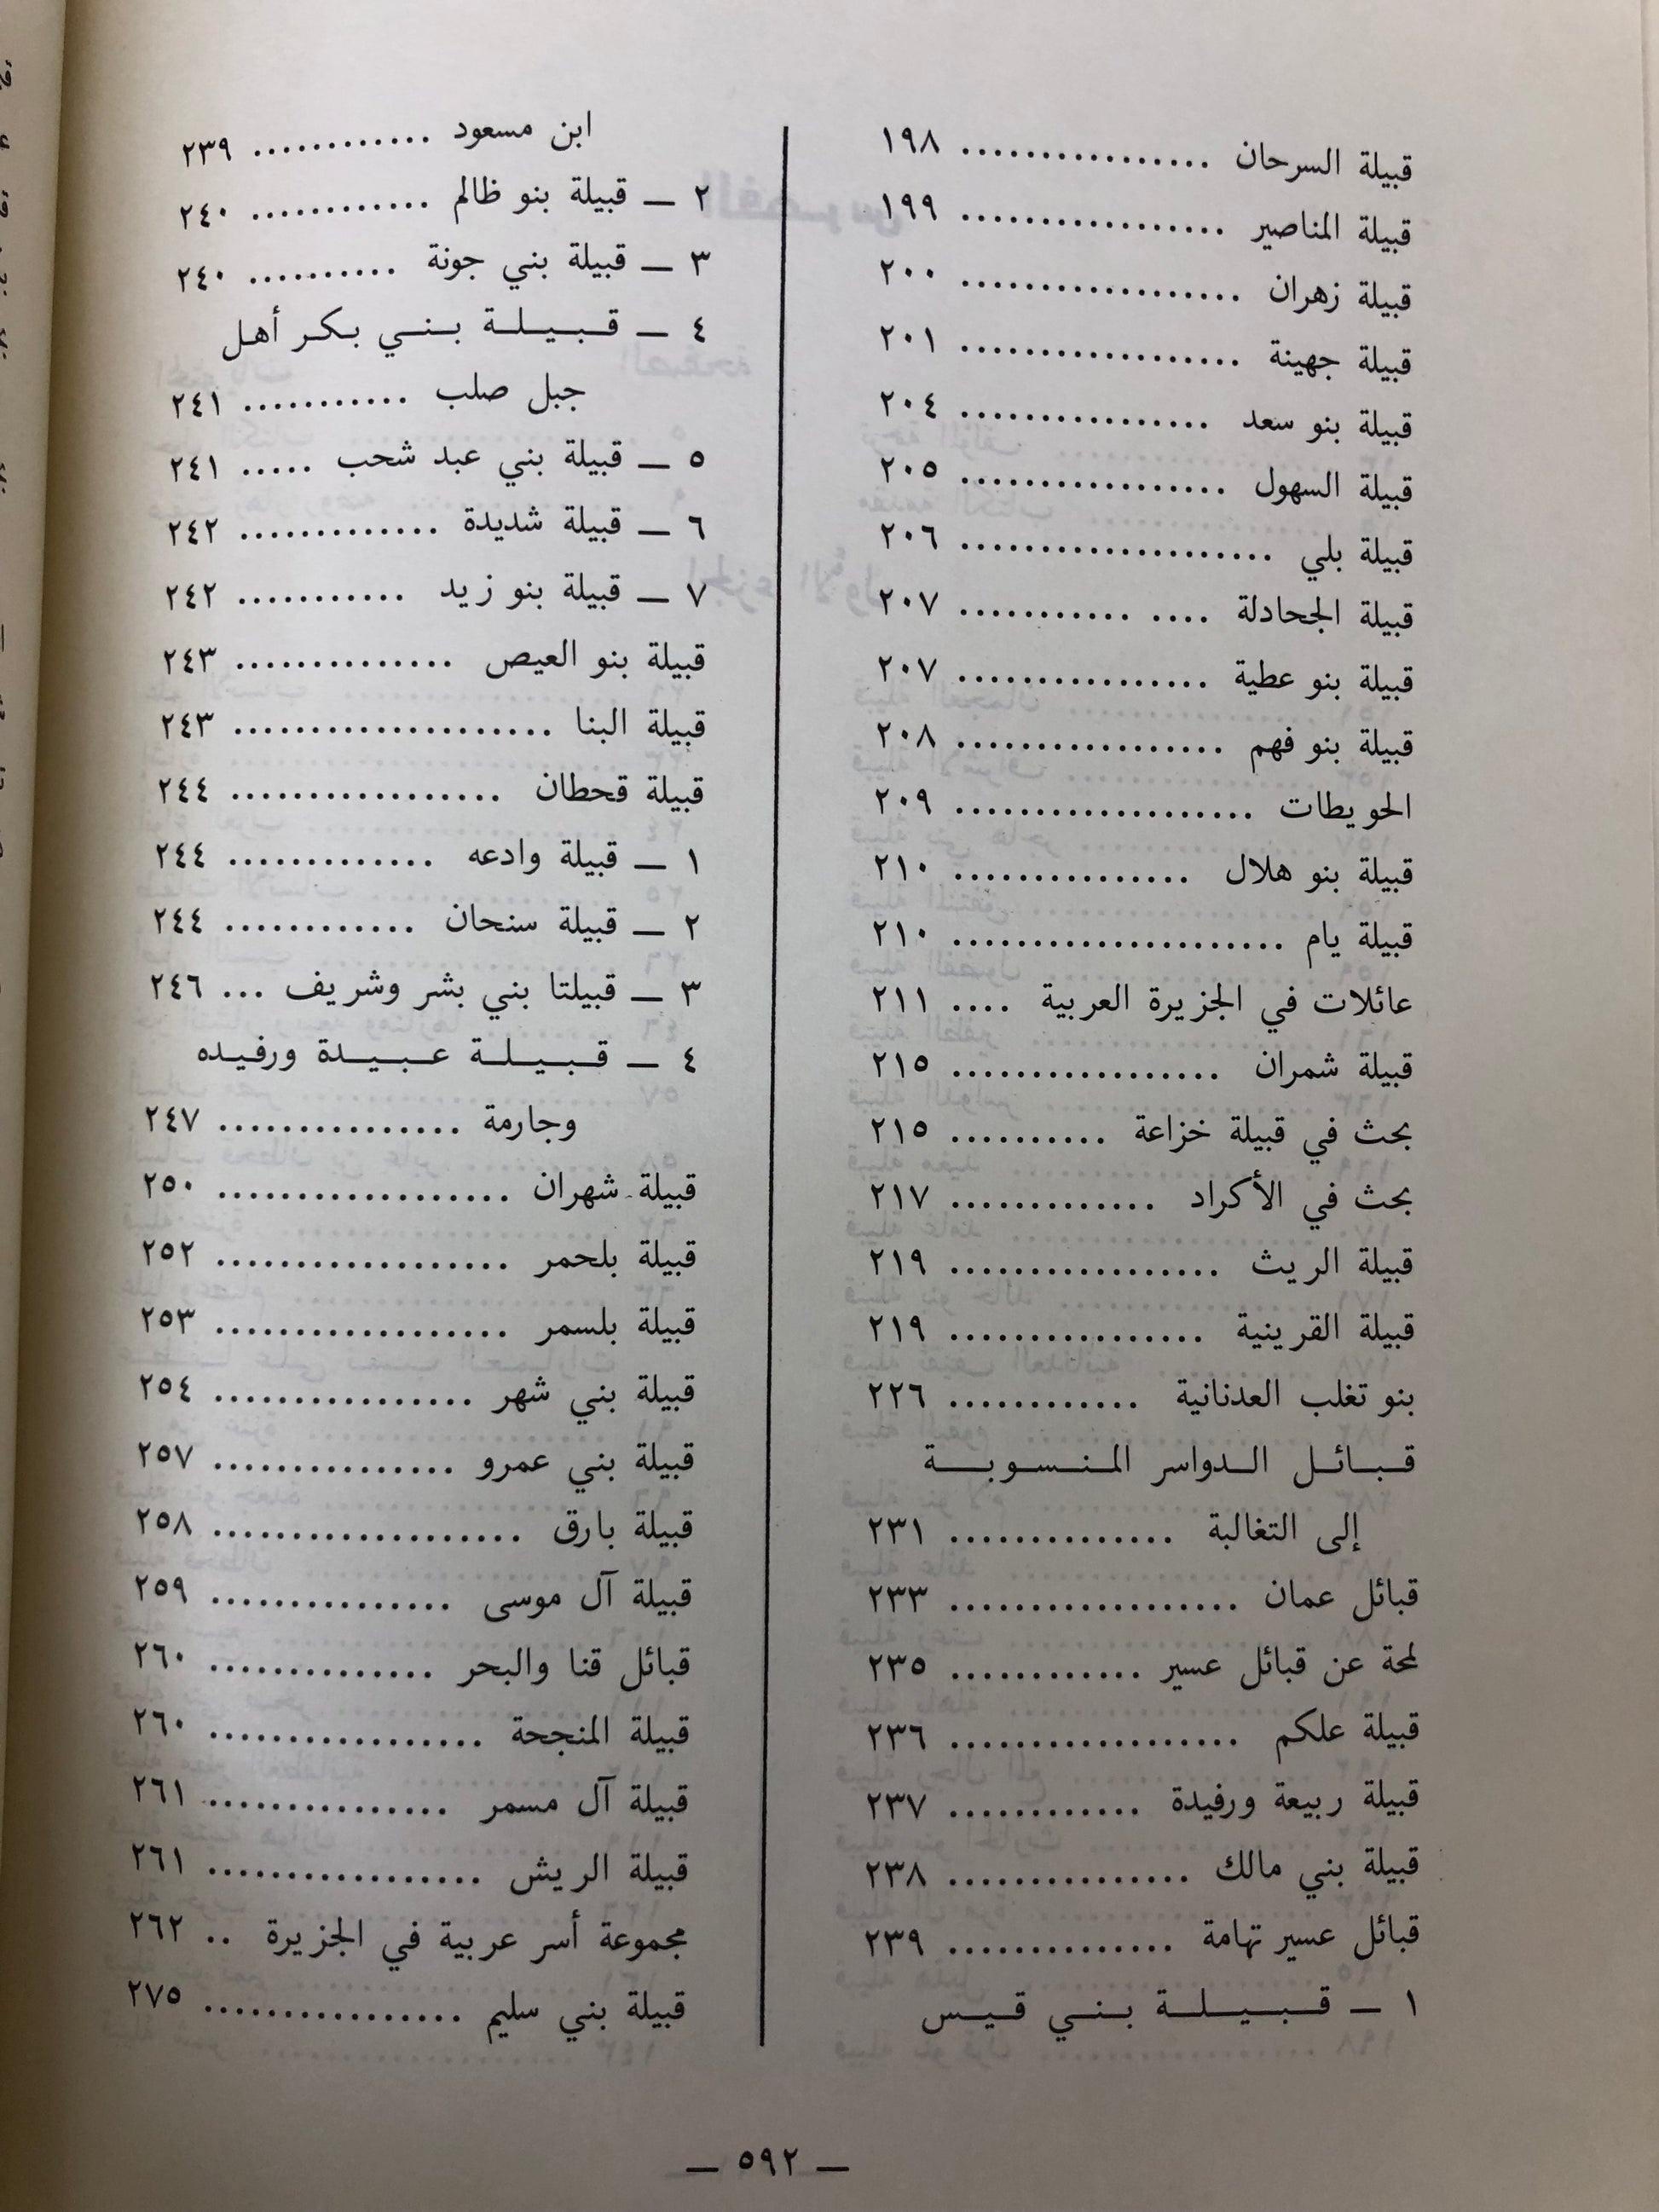 قبيلة السرحان ................ ١٩٨
قبيلة المناصير ................. ١٩٩
قبيلة زهران .................. ٢٠٠
قبيلة جهينة .................. ٢٠١
قبيلة بنو سعد ................ ٢٠٤
قبيلة السهول ................. ٢٠٥
قبيلة بلي .................... ٢٠٦
قبيلة الجحادلة .... ........... ٢٠٧
قبيلة بنو عطية ................ ٢٠٧
قبيلة بنو فهم ................. ٢٠٨
الحويطات ................... ٢٠٩
قبيلة بنو هلال ............... ٢١٠
قبيلة يام ..................... ٢١٠
عائلات في الجزيرة العربية .... ٢١١
قبيلة شمران ................. ٢١٥
بحث في قبيلة خزاعة .......... ٢١٥
بحث في الأكراد ............. ٢١٧
قبيلة الريث ................. ٢١٩
قبيلة القرينية ................ ٢١٩
بنو تغلب العدنانية ............ ٢٢٦
قبائل الدواسر المنسوبة
إلى التغالبة .............. ٢٣١
قبائل عمان .................. ٢٣٣
لمحة عن قبائل عسير ............ ٢٣٥
قبيلة علكم .................. ٢٣٦
قبيلة ربيعة ورفيدة ............ ٢٣٧
قبيلة بني مالك ............... ٢٣٨
قبائل عسير تهامة .............. ٢٣٩
١ ــ قبيلة بني قيس
ابن مسعود ............ ٢٣٩
٢ ــ قبيلة بنو ظالم ............ ٢٤٠
٣ ــ قبيلة بني جونة .......... ٢٤٠
٤ ــ قبيلة بني بكر أهل
جبل صلب ........... ٢٤١
٥ ــ قبيلة بني عبد شحب ..... ٢٤١
٦ ــ قبيلة شديدة ............. ٢٤٢
٧ ــ قبيلة بنو زيد ........... ٢٤٢
قبيلة بنو العيص .............. ٢٤٣
قبيلة البنا .................... ٢٤٣
قبيلة قحطان ................. ٢٤٤
١ ــ قبيلة وادعه ............. ٢٤٤
٢ ــ قبيلة سنحان ............ ٢٤٤
٣ ــ قبيلتا بني بشر وشريف ... ٢٤٦
٤ ــ قبيلة عبيدة ورفيده
وجارمة ............... ٢٤٧
قبيلة شهران .................. ٢٥٠
قبيلة بلحمر .................. ٢٥٢
قبيلة بلسمر .................. ٢٥٣
قبيلة بني شهر ................ ٢٥٤
قبيلة بني عمرو ............... ٢٥٧
قبيلة بارق ................... ٢٥٨
قبيلة آل موسى ............... ٢٥٩
قبائل قنا والبحر .............. ٢٦٠
قبيلة المنجحة ................. ٢٦٠
قبيلة آل مسمر ............... ٢٦١
قبيلة الريش ................. ٢٦١
مجموعة أسر عربية في الجزيرة .. ٢٦٢
قبيلة بني سليم ................ ٢٧٥
ــ ٥٩٢ ــ